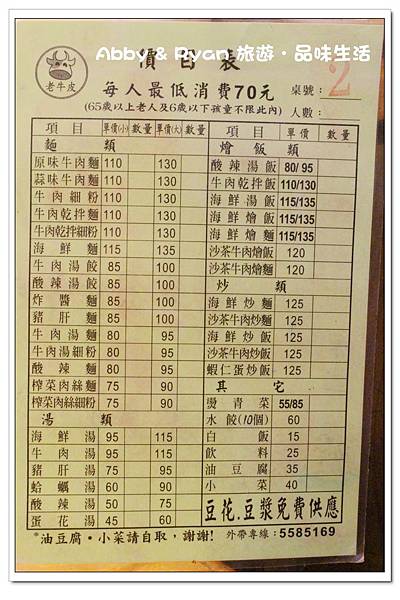 Abby & Ryan 旅遊・品味生活
價目表
老牛皮
每人最低消費70元
(65歲以上老人及6歲以下孩童不限此內)
桌號: 2
人數:
項目 單價(小) 數量 單價(大) 數量
麵類
原味牛肉麵 110 130
蒜味牛肉麵 110 130
牛肉細粉 110 130
牛肉乾拌麵 110 130
牛肉乾拌細粉 110 130
海鮮麵 115 135
牛肉湯餃 85 100
酸辣湯餃 85 100
炸醬麵 85 100
豬肝麵 85 100
牛肉湯麵 80 95
牛肉湯細粉 80 95
酸辣麵 80 95
榨菜肉絲麵 75 90
榨菜肉絲細粉 75 90
湯類
海鮮湯 95 115
牛肉湯 95 115
豬肝湯 75 90
蛤蠣湯 60 90
酸辣湯 50 75
蛋花湯 45 60
項目 單價 數量
燴飯類
酸辣湯飯 80/95
牛肉乾拌飯 110/130
海鮮湯飯 115/135
海鮮燴飯 115/135
海鮮燴麵 115/135
沙茶牛肉燴飯 120
沙茶牛肉燴麵 120
炒類
海鮮炒麵 125
海鮮炒飯 125
沙茶牛肉炒麵 125
沙茶牛肉炒飯 125
蝦仁蛋炒飯 125
其它
燙青菜 55/85
水餃(10個) 60
白飯 15
飲料 25
油豆腐 35
小菜 40
豆花.豆漿免費供應
*油豆腐・小菜請自取,謝謝! 外帶專線:5585169